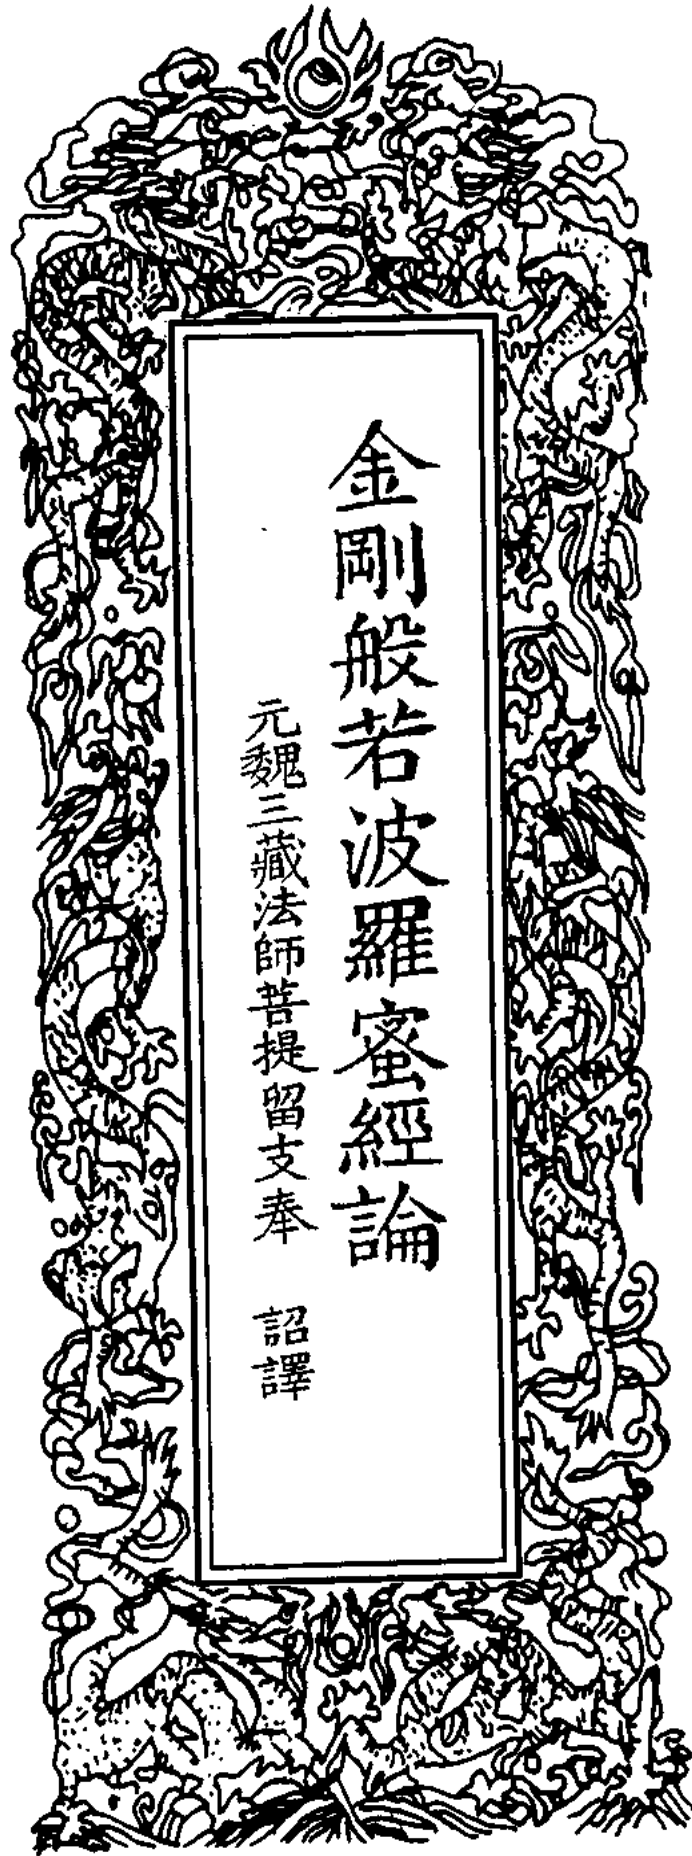 金剛般若波羅蜜經論
元魏三藏法師菩提留支奉　詔譯